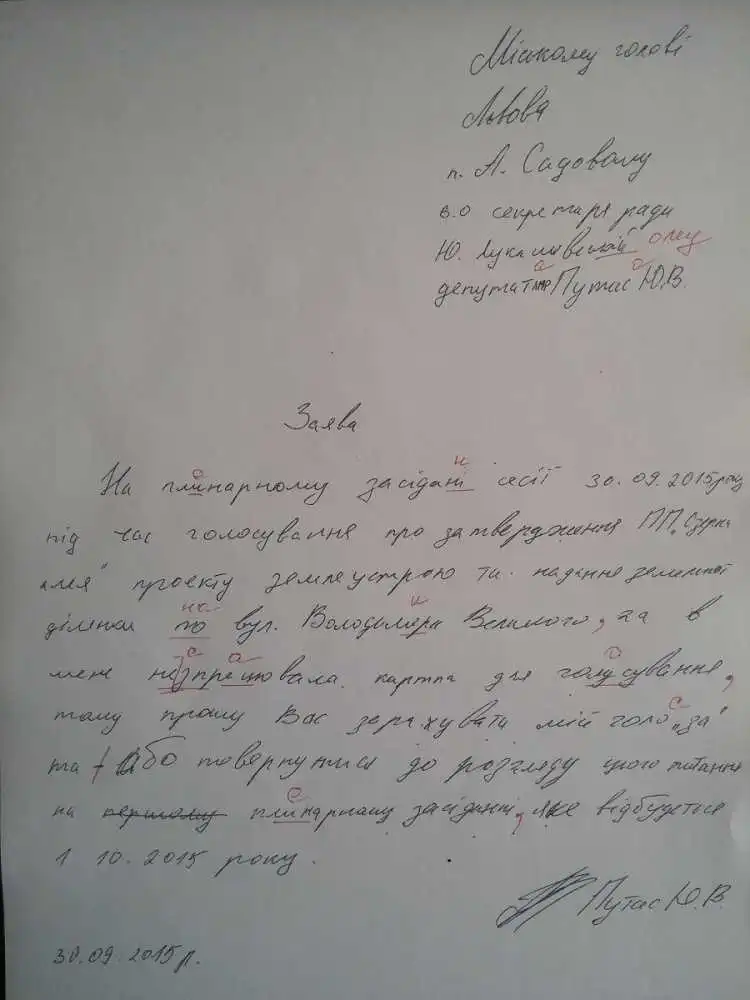 Міському голові
Львова
п. А. Садовому
в.о секретаря ради
Ю. олму
депутат ЛМР Путас Ю.В.
а а
Заява
е н
На плинарному засідані сесії 30.09.2015року
під час голосування про затвердження ПП „Озерна
алея" проекту землеустрою та надання земельної
на и
ділянки по вул. Володимера Великого, та в
с а о
мене незпрацювала картка для голусування,
с
тому прошу Вас зарахувати мій голо „за"
та / Або повернутися до розгляду цього питання
е
на першому плинарному засіданні, яке відбудеться
1 10. 2015 року.
Путас Ю.В.
30.09.2015р.